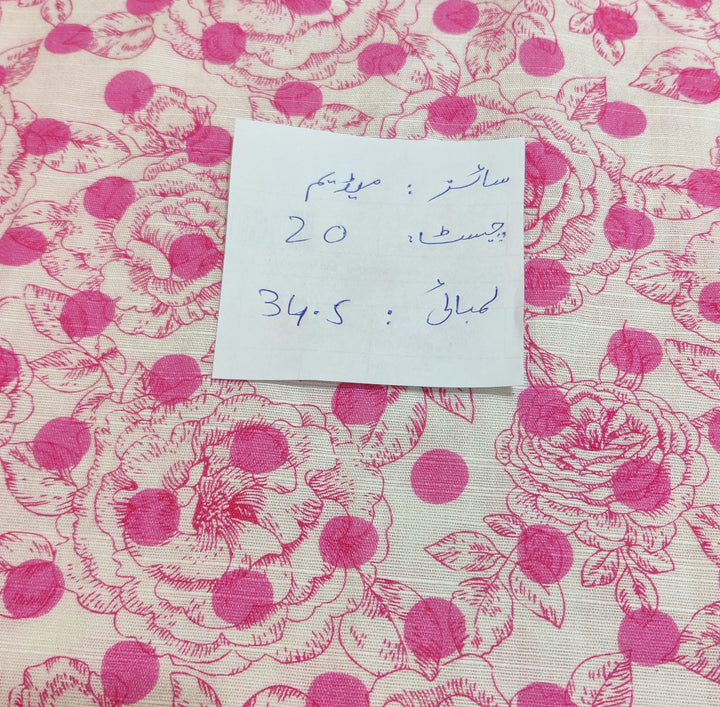 سائز : میڈیم
چیسٹ : 20
لمبائی : 34.5